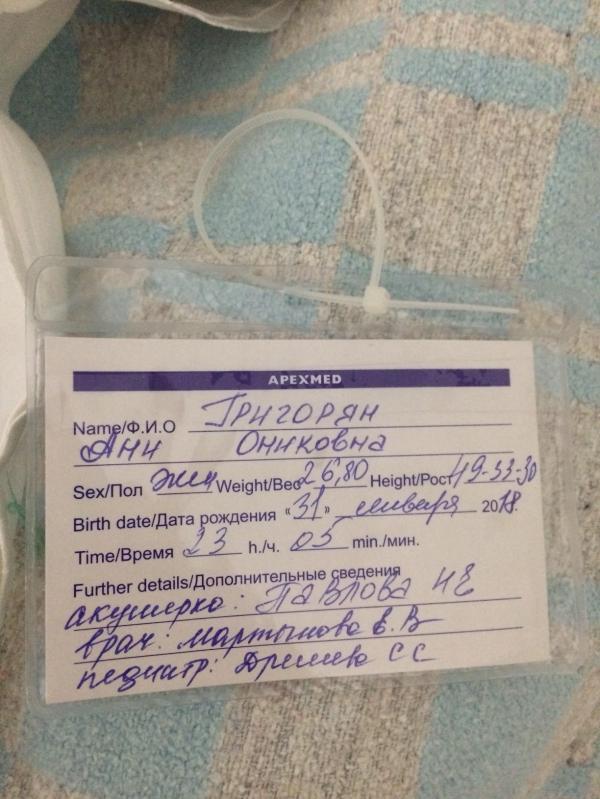 APEXMED
Name/Ф.И.О Григорян
Ани Ониковна
Sex/Пол жен Weight/Вес 26,80 Height/Рост 49-33-30
Birth date/Дата рождения «31» января 2018.
Time/Время 23 h./ч. 05 min./мин.
Further details/Дополнительные сведения
акушерка: Павлова Н Е
врач: Мартынова Е.В
педиатр: С С